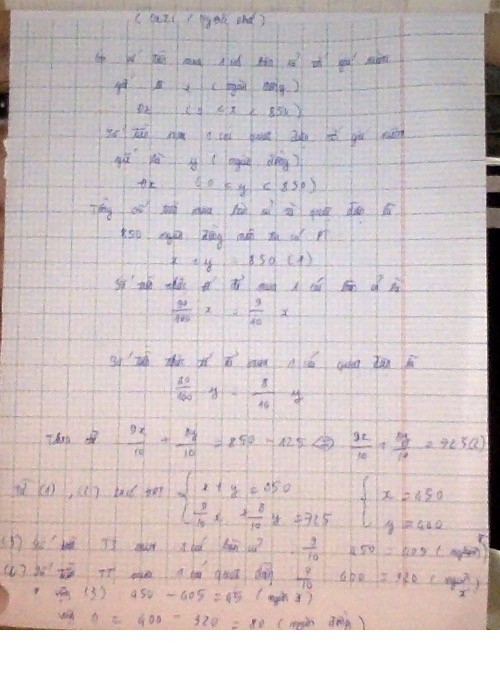 Số tiền mua 1 cái bàn ủi với giá niêm
yết là x (ngàn đồng)
ĐK (0 < x < 850)
Số tiền mua 1 cái quạt điện với giá niêm
yết là y (ngàn đồng)
ĐK (0 < y < 850)
Tổng số tiền mua bàn ủi và quạt điện là
850 ngàn đồng nên ta có PT
x + y = 850 (1)
Số tiền thực tế để mua 1 cái bàn ủi là
90/100 x = 9/10 x
Số tiền thực tế để mua 1 cái quạt điện là
80/100 y = 8/10 y
9x/10 + 8y/10 = 850 - 125 <=> 9x/10 + 8y/10 = 725 (2)
Từ (1), (2) { x + y = 850 { x = 450
9/10 x + 8/10 y = 725 y = 400
Số tiền TT mua 1 cái bàn ủi 9/10 450 = 405 (ngàn)
Số tiền TT mua 1 cái quạt điện 8/10 400 = 320 (ngàn
450 - 405 = 45 (ngàn đ)
= 400 - 320 = 80 (ngàn đồng)